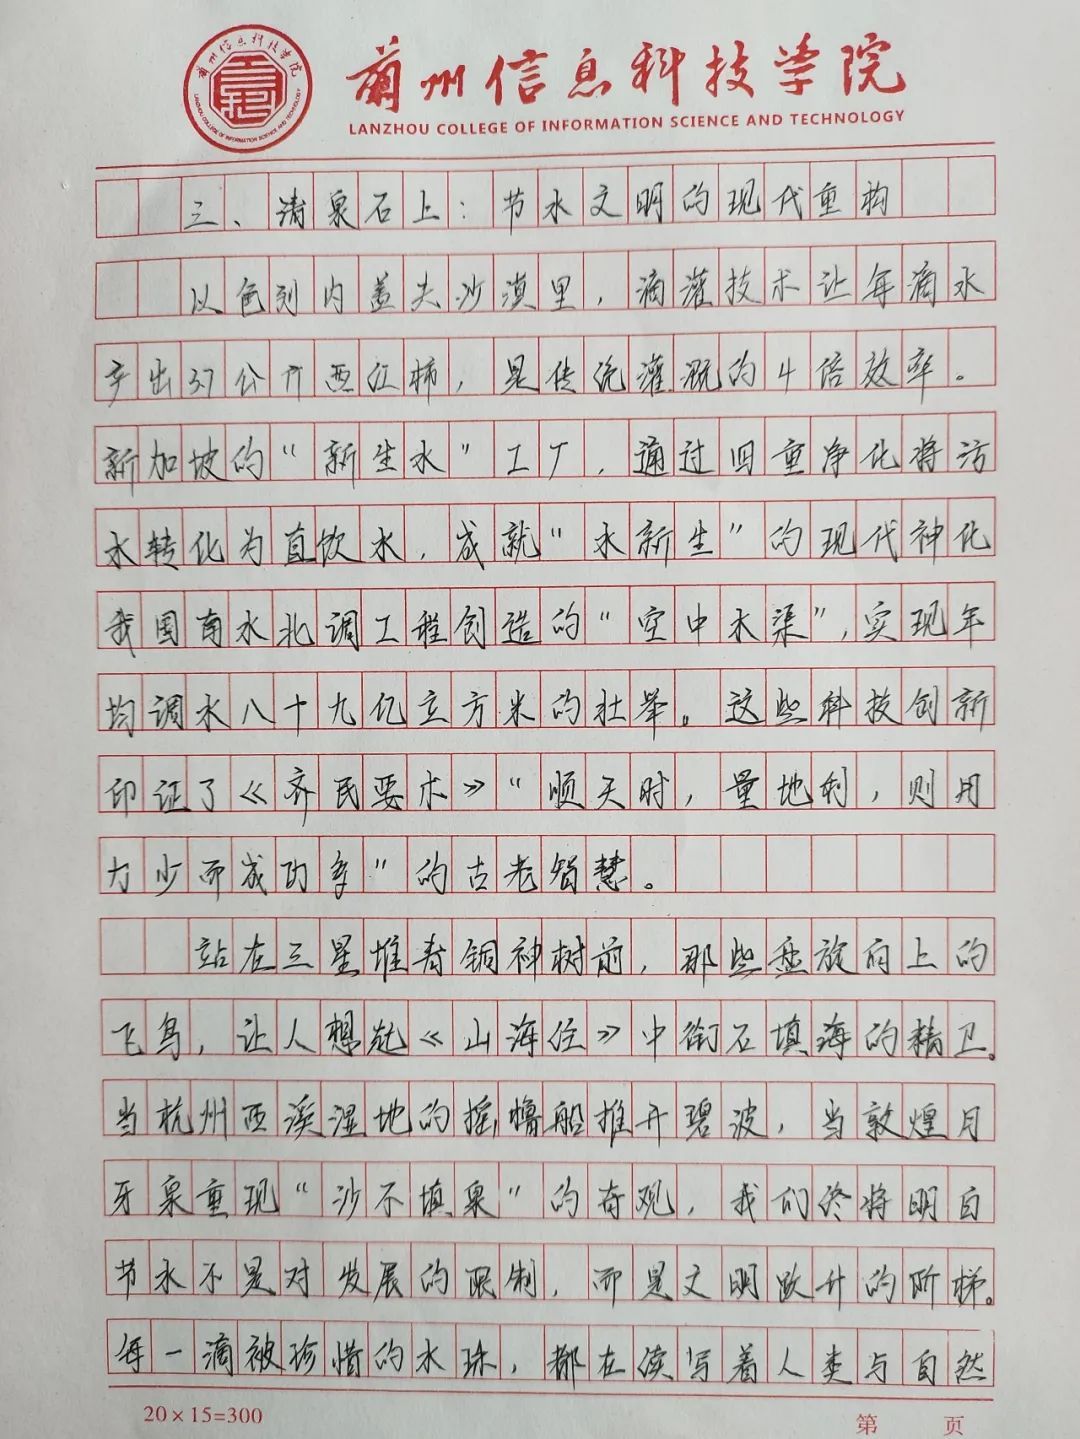 兰州信息科技学院
LANZHOU COLLEGE OF INFORMATION SCIENCE AND TECHNOLOGY
三、清泉石上：节水文明的现代重构
以色列内盖夫沙漠里，滴灌技术让每滴水
产出37公斤西红柿，是传统灌溉的4倍效率。
新加坡的“新生水”工厂，通过四重净化将污
水转化为直饮水，成就“水新生”的现代神化
我国南水北调工程创造的“空中水渠”，实现年
均调水八十九亿立方米的壮举。这些科技创新
印证了《齐民要术》“顺天时，量地利，则用
力少而成功多”的古老智慧。
站在三星堆青铜神树前，那些盘旋向上的
飞鸟，让人想起《山海经》中衔石填海的精卫。
当杭州西溪湿地的摇橹船推开碧波，当敦煌月
牙泉重现“沙不填泉”的奇观，我们终将明白
节水不是对发展的限制，而是文明跃升的阶梯。
每一滴被珍惜的水珠，都在续写着人类与自然
20×15=300
第 页